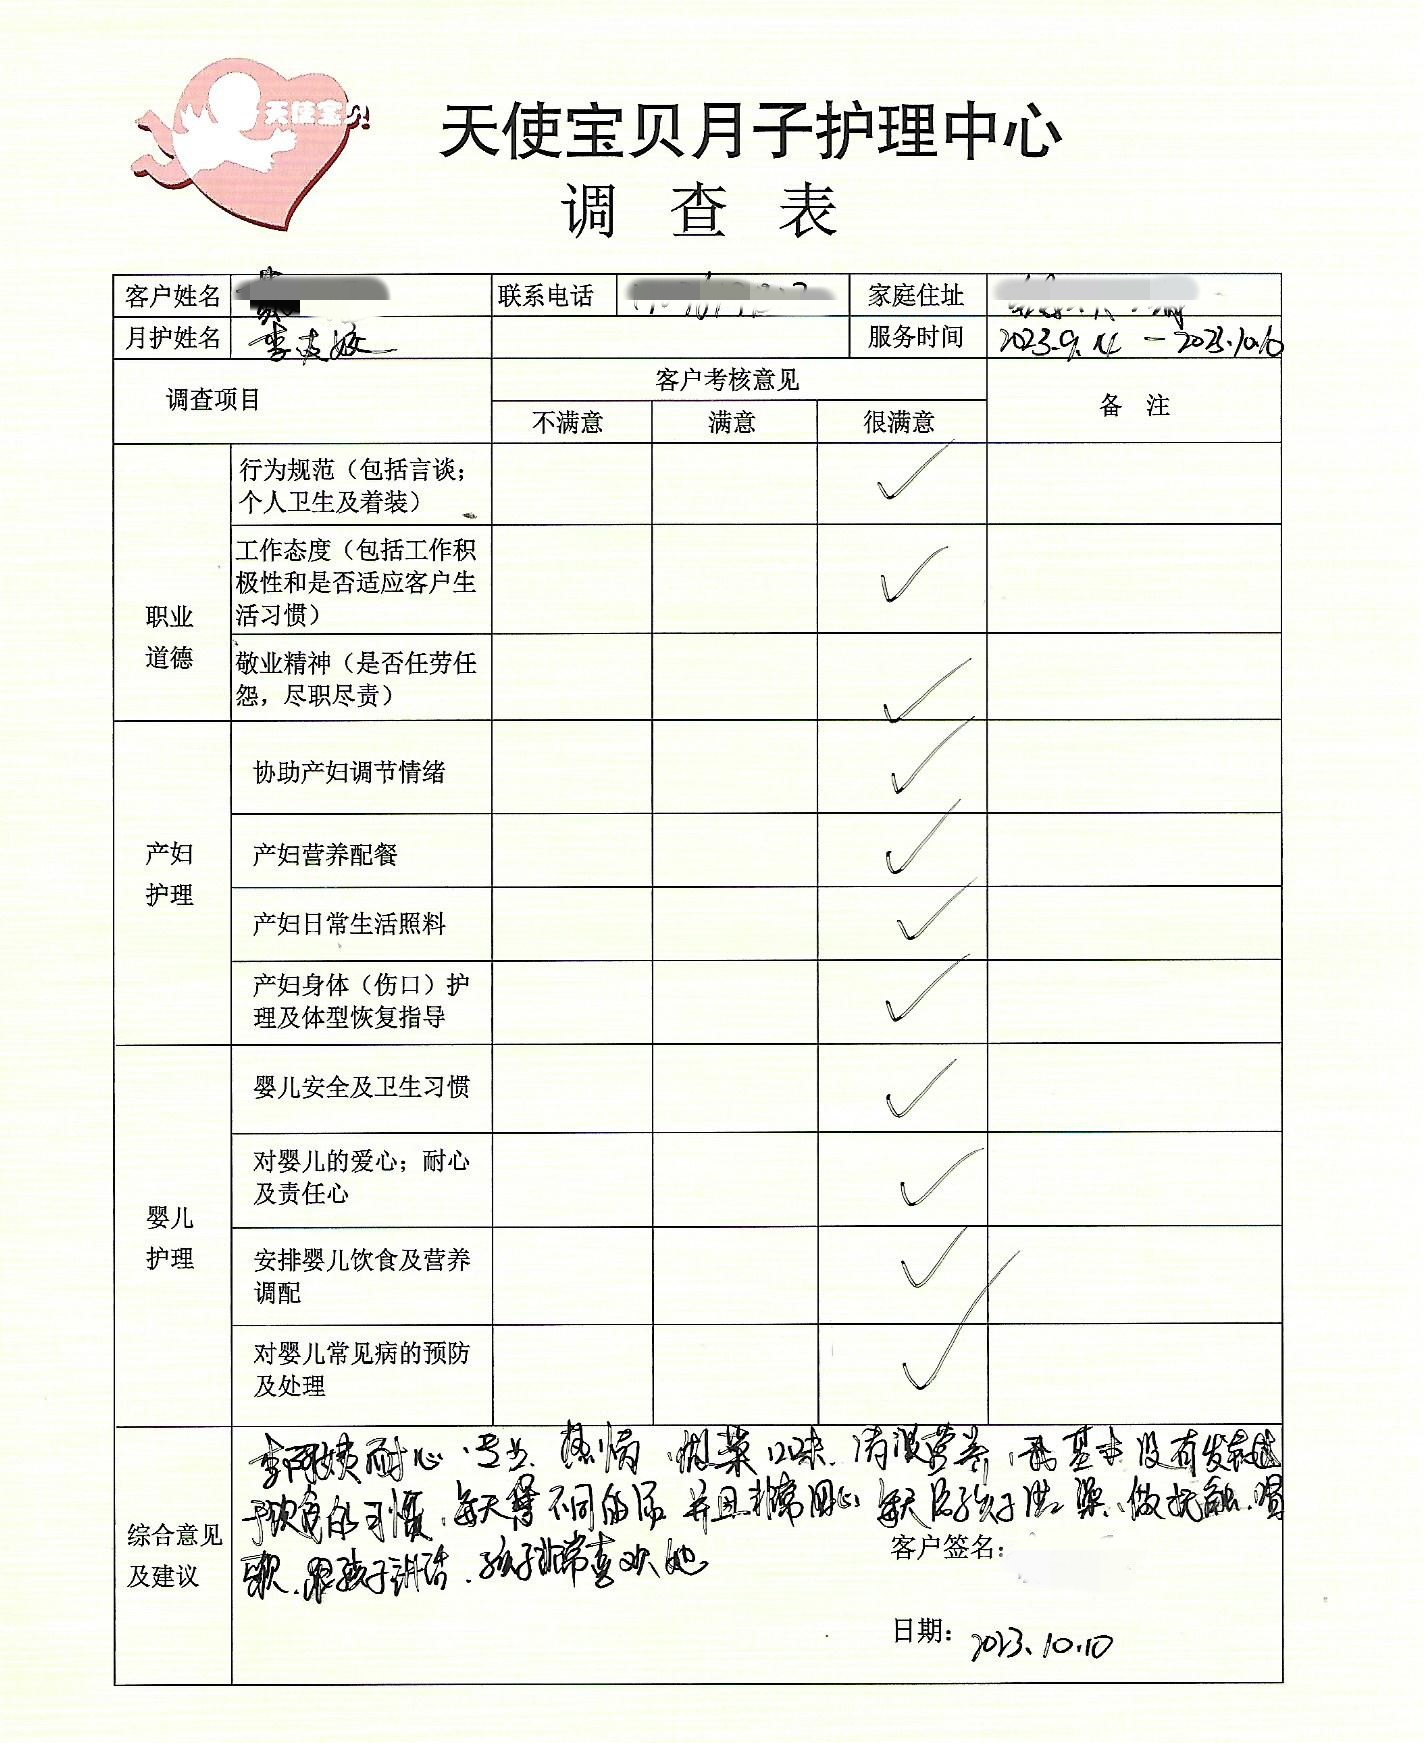 天使宝贝
天使宝贝月子护理中心
调 查 表
客户姓名 联系电话 家庭住址
月护姓名 李 服务时间 2023.9.14 - 2023.10.10
调查项目 客户考核意见 备 注
不满意 满意 很满意
职业道德
行为规范（包括言谈；
个人卫生及着装）
工作态度（包括工作积
极性和是否适应客户生
活习惯）
敬业精神（是否任劳任
怨，尽职尽责）
产妇护理
协助产妇调节情绪
产妇营养配餐
产妇日常生活照料
产妇身体（伤口）护
理及体型恢复指导
婴儿护理
婴儿安全及卫生习惯
对婴儿的爱心；耐心
及责任心
安排婴儿饮食及营养
调配
对婴儿常见病的预防
及处理
综合意见及建议
李阿姨耐心、专业、热情、做菜口味清淡营养，基本没有发
饮食的习惯，每天不同的 并且非常用心 每天给孩子洗澡、做抚触、唱
歌、跟孩子讲话，孩子非常喜欢她
客户签名：
日期：2023.10.10